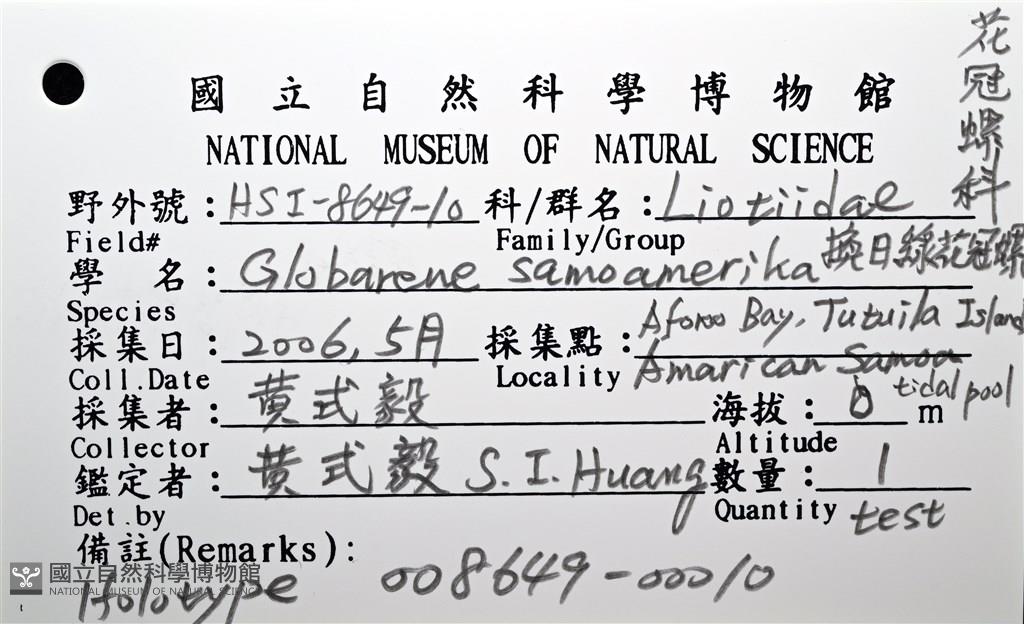 花冠螺科
國立自然科學博物館
NATIONAL MUSEUM OF NATURAL SCIENCE
野外號：HSI-8649-10 科/群名：Liotiidae
Field# Family/Group
學名：Globarene samoamerika 換日線花冠螺
Species
採集日：2006, 5月 採集點：Afono Bay, Tutuila Island
Coll.Date Locality Amarican Samoa
採集者：黃式毅 海拔：0 m tidal pool
Collector Altitude
鑑定者：黃式毅 S. I. Huang 數量：1
Det.by Quantity test
備註(Remarks):
Holotype 008649-00010
國立自然科學博物館
NATIONAL MUSEUM OF NATURAL SCIENCE